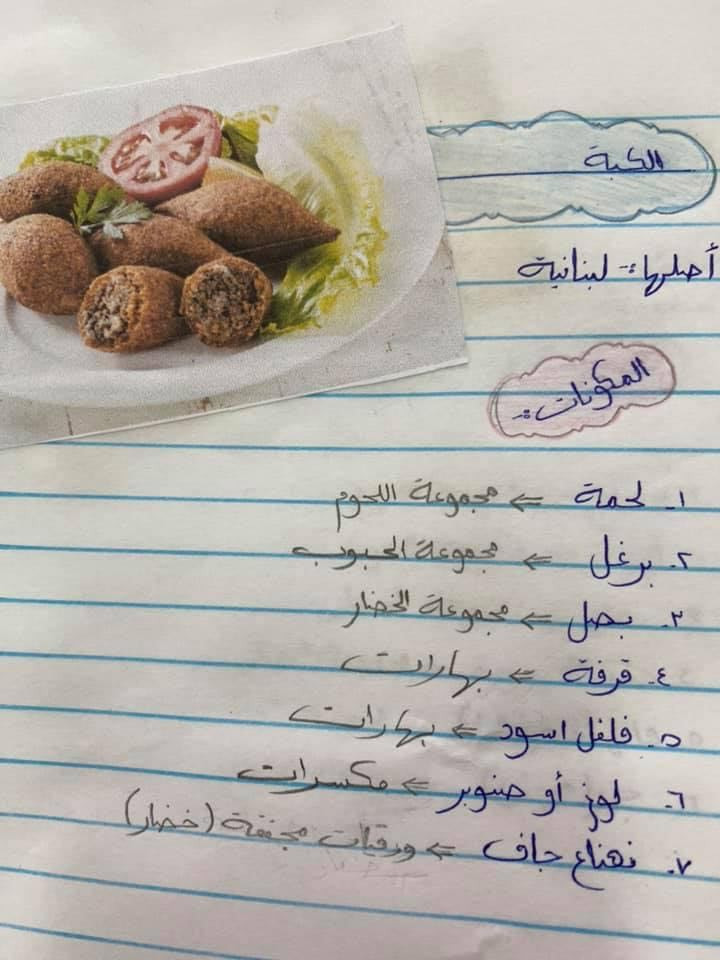 الكبة
أصلها:- لبنانية
المكونات:-
١. لحمة ⇐ مجموعة اللحوم
٢. برغل ⇐ مجموعة الحبوب
٣. بصل ⇐ مجموعة الخضار
٤. قرفة ⇐ بهارات
٥. فلفل اسود ⇐ بهارات
٦. لوز أو صنوبر ⇐ مكسرات
٧. نعناع جاف ⇐ ورقيات مجففة (خضار)